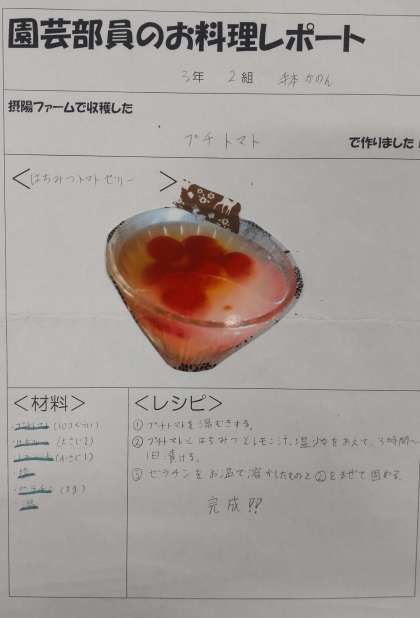 園芸部員のお料理レポート
3年 2組
摂陽ファームで収穫した
プチトマト
で作りました!
<はちみつトマトゼリー>
<材料>
・プチトマト(10コぐらい)
(大さじ2)
(小さじ1)
・塩
・ゼラチン(5g)
<レシピ>
①プチトマトを湯むきする。
②プチトマトにはちみつとレモン汁、塩少々をあえて、3時間〜
1日漬ける。
③ゼラチンをお湯で溶かしたものと②をまぜて固める。
完成!!